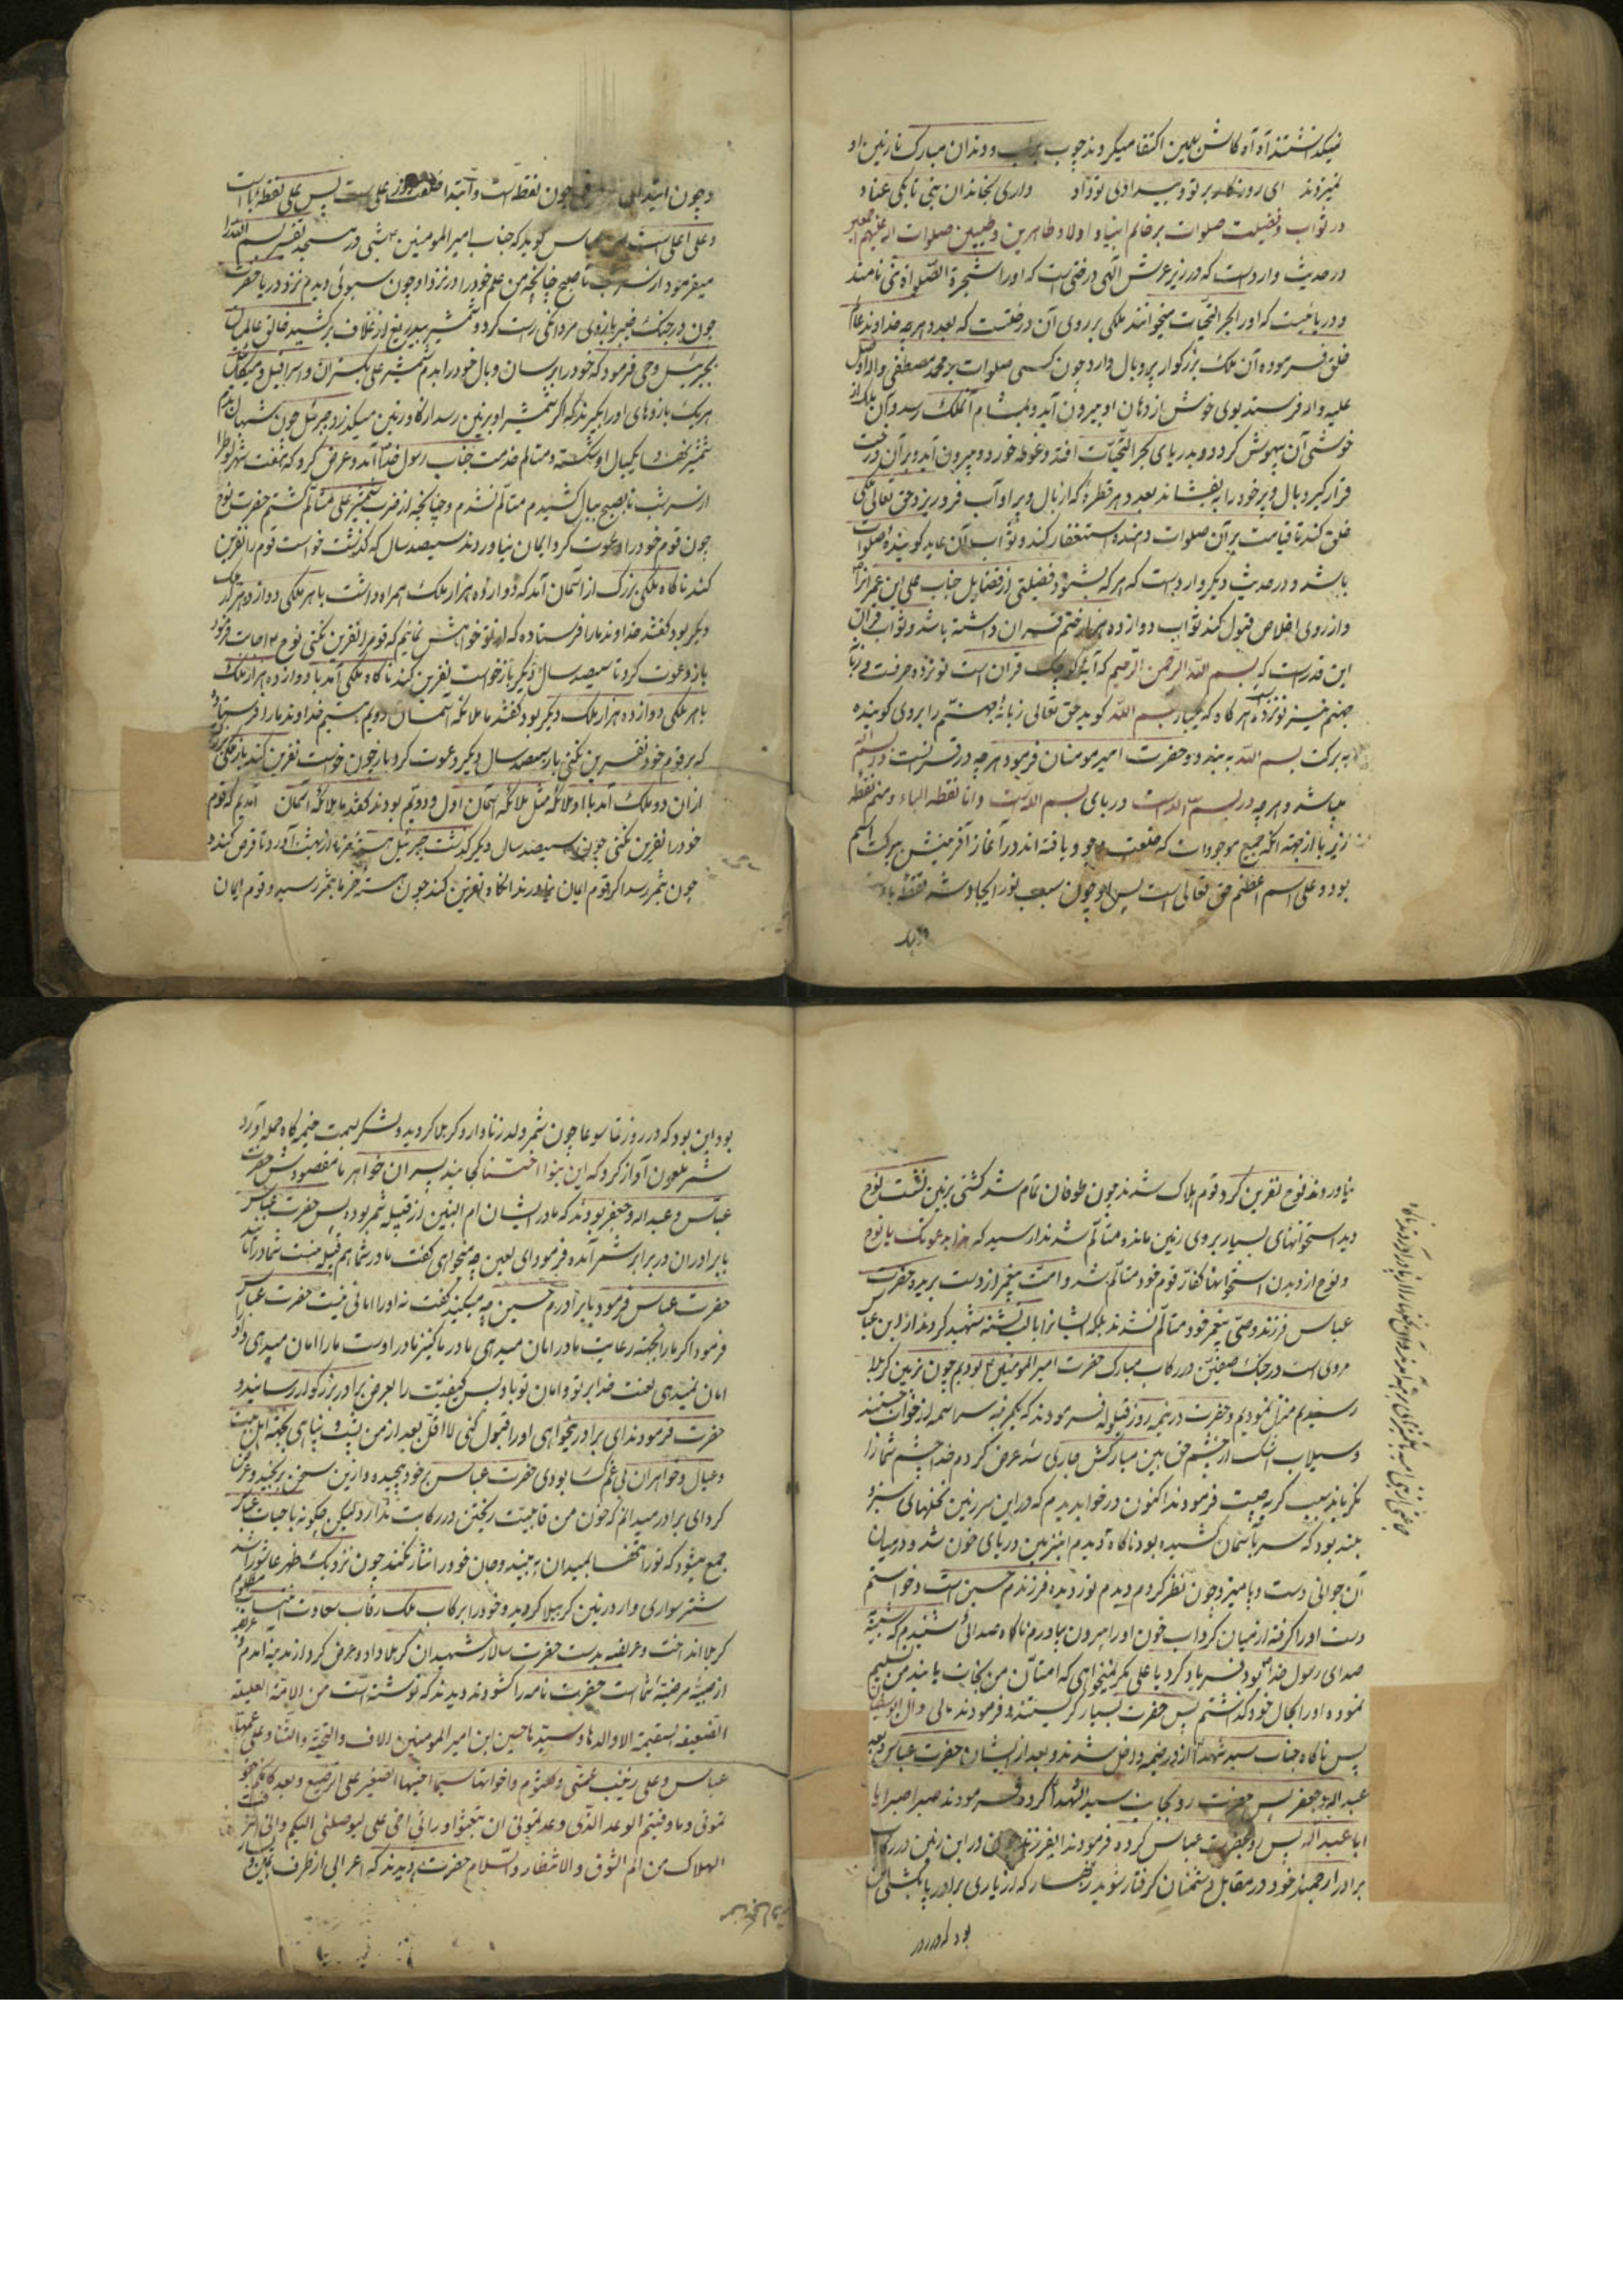 نمیکداشتند آه آه کاش بهمین اکتفا میکردند چوب بر لب و دندان مبارک نازنین او
نمیزدند ای روزگار بر تو و بیدادی تو داد داری بخاندان نبی تا بکی عناد
در ثواب و فضیلت صلوات بر خاتم انبیا و اولاد طاهرین و طیبین صلوات الله علیهم اجمعین
در حدیث وارد است که در زیر عرش الهی درختی است که او را شجرة الصلواة می نامند
و دریائیست که او را بحر التحیات میخوانند ملکی بر روی آن درختست که بعدد هرچه خداوند عالم
خلق فرموده آن ملک بزرگوار پر و بال دارد چون کسی صلوات بر محمد مصطفی و آل او صلی
علیه و آله فرستد بوی خوش از دهان او بیرون آید و بمشام آن ملک رسد و آن ملک از
خوشی آن بیهوش گردد و بدریای بحر التحیات افتد و غوطه خورد و بیرون آید و بر آن درخت
قرار گیرد و بال و پر خود را بیفشاند بعدد هر قطرۀ که از بال و پر او آب فرو ریزد حق تعالی ملکی
خلق کند تا قیامت بر آن صلوات دهنده استغفار کند و ثواب آن عاید گوینده صلوات
باشد و در حدیث دیگر وارد است که هر که بشنود فضیلتی از فضایل جناب علی ابن عمرانرا
و از روی اخلاص قبول کند ثواب دوازده هزار ختم قرآن داشته باشد و ثواب قرآن
این قدر است که بسم الله الرحمن الرحیم که آیۀ کوچک قرآن است نوزده حرفست و زبانۀ
جهنم نیز نوزده هر گاه که یکبار بسم الله گوید حق تعالی زبانۀ جهنم را بروی گوینده
به برکت بسم الله به بندد و حضرت امیر مومنان فرمود هرچه در قرآنست در بسم الله
میباشد و هرچه در بسم الله است در بای بسم الله است و انا نقطه الباء و منم نقطه
زیر با از جهة آنکه جمیع موجودات که خلعت وجود یافته اند در آغاز آفرینش ببرکت اسم
بود و علی اسم اعظم حق تعالی است پس او چون سبب نور ایجاد شد نقطۀ باء
و چون ابتدای چون نقطه است و ابتدا خلقت نور علی است پس علی نقطۀ با است
و علی اعلی است ابن عباس گوید که جناب امیر المومنین شبی در مسجد تفسیر بسم الله را
میفرمود از سر شب تا صبح چنانچه من علم خود را در نزد او چون سبوئی دیدم نزد دریا حضرت
چون در جنگ خیبر بازوی مردانگی راست کرد و شمشیر بیدریغ از غلاف برکشید خالق عالمیان
بجبرئیل وحی فرمود که خود را برسان و بال خود را بدم شمشیر علی بگستران و اسرافیل و میکائیل
هر یک بازوهای او را بگیرند که اگر شمشیر او بر زمین رسد از گاو زمین میگذرد جبرئیل چون
شمشیر بال او شکسته و متالم خدمت جناب رسول خدا آمد و عرض کرد که هفت شهر لوط را
از سر شب تا بصبح ببال کشیدم متالم نشدم و چنانچه از ضرب شمشیر علی متالم گشتم حضرت نوح
چون قوم خود را دعوت کرد ایمان نیاوردند سیصد سال که گذشت خواست قوم را نفرین
کند ناگاه ملکی بزرگ از آسمان آمد که دوازده هزار ملک همراه داشت با هر ملکی دوازده هزار ملک
دیگر بود گفتند خداوند ما را فرستاده که از تو خواهش نمائیم که قوم را نفرین نکنی نوح اجابت فرمود
باز دعوت کرد تا سیصد سال دیگر باز خواست نفرین کند ناگاه ملکی آمد با دوازده هزار ملک
با هر ملکی دوازده هزار ملک دیگر بود گفتند ما ملائکه آسمان دویم هستیم خداوند ما را فرستاده
که بر قوم خود نفرین نکنی باز سیصد سال دیگر دعوت کرد باز چون خواست نفرین کند باز ملکی
از آن دو ملک آمد با او ملائکه مثل ملائکه آسمان اول و دویم بودند گفتند ما ملائکه آسمان آمدیم که قوم
خود را نفرین نکنی چون سیصد سال دیگر گذشت جبرئیل هسته خرما از بهشت آورد تا غرس کند و
چون بثمر رسد اگر قوم ایمان نیاوردند آنگاه نفرین کند چون هسته خرما بثمر رسید و قوم ایمان
نیاوردند نوح نفرین کرد قوم هلاک شدند چون طوفان تمام شد کشتی بزمین نشست نوح
دید استخوانهای بسیار بروی زمین مانده متألم شد ندا رسید که هذا بدعوتک یا نوح
و نوح از دیدن استخوانها کفار قوم خود متالم شد و امت پیغمبر از دست بریده حضرت
عباس فرزند وصی پیغمبر خود متالم نشدند بلکه ایشانرا با لب تشنه شهید کردند از ابن عباس
مروی است در جنگ صفین در رکاب مبارک حضرت امیر المومنین بودیم چون بزمین کربلا
رسیدیم منزل نمودیم و حضرت در نیم روز قیلوله فرمودند که یکمرتبه سراسیمه از خواب جستند
و سیلاب اشک از چشم حق بین مبارکش جاری شد عرض کردم خدا چشم شما را
نگریاند سبب گریه چیست فرمودند اکنون در خواب دیدم که در این سرزمین نخلهای سبز و
بلند بود که سر بآسمان کشیده بود ناگاه دیدم این زمین دریای خون شد و در میان
آن جوانی دست و پا میزد چون نظر کردم دیدم نور دیده فرزندم حسین است و خواستم
دست او را گرفته از میان گرداب خون او را بیرون بیاورم ناگاه صدائی شنیدم که شبیه
صدای رسول خدا بود فریاد کرد یا علی مگر نمیخواهی که امتان من نجات یابند من تسلیم
نموده او را بحال خود گذاشتم پس حضرت بسیار گریستند و فرمودند مالی و آل ابوسفیان
پس ناگاه جناب سید شهدا از در خیمه داخل شدند و بعد از ایشان حضرت عباس و بعد
عبدالله و جعفر پس حضرت رو بجانب سید الشهدا کرد و فرمودند صبرا صبرا یا
ابا عبدالله پس رو بحضرت عباس کرده فرمودند ایفرزند چون در این زمین در رکاب
برادر ارجمند خود در مقابل دشمنان گرفتار شوید زنهار که از یاری برادر پا نکشی این
بود که در روز
بود این بود که در روز تاسوعا چون شمر ولد زنا وارد کربلا گردید و لشکر بسمت خیمه گاه حمله آورد
شمر ملعون آواز کرد که این بنوا اختنا کجایند پسران خواهر ما مقصودش حضرت
عباس و عبدالله و جعفر بودند که مادر ایشان ام البنین از قبیله شمر بوده پس حضرت عباس
با برادران در برابر شمر آمده فرمود ای لعین چه میخواهی گفت مادر شما هم قبیله منست شما در امانید
حضرت عباس فرمود با برادرم حسین چه میکنید گفت نه او را امانی نیست حضرت عباس
فرمود اگر ما را بجهة رعایت مادر امان میدهی مادر ما کنیز مادر اوست ما را امان میدهی و او را
امان نمیدهی لعنت خدا بر تو و امان تو باد پس کیفیت را بعرض برادر بزرگوار رسانیدند
حضرت فرمودند ای برادر میخواهی او را قبول کنی لا اقل بعد از من پشت و پناهی بجهة اهل بیت
و عیال و خواهران بی غمگسار بودی حضرت عباس بر خود پیچیده و از این سخن برنجید و عرض
کرد ای برادر میدانم که خون من قابلیت ریختن در رکابت ندارد لیکن چگونه با حیات عباس
جمع میشود که تو را تنها بمیدان به بیند و جان خود را نثار نکند چون نزدیک ظهر عاشورا شد
شتر سواری وارد زمین کربلا گردید و خود را بر کاب ملک رقاب سعادت انتساب مظلوم
کربلا انداخت و عریضه بدست حضرت سالار شهیدان کربلا داد و عرض کرد از مدینه آمدم عریضه
از صبیۀ مرضیۀ شماست حضرت نامه را گشودند دیدند که نوشته است من الابنة العلیله
الضعیفه السقیمة الا والدها و سیدها حسین ابن امیر المومنین الاف و التحیة و الثناء و علی عمها
عباس و علی زینب عمتی و کلثوم و اخوانها سیما اخیها الصغیر علی الرضیع و بعد کأنکم
تمونی و ما وفیتم الوعد الذی وعدتمونی ان تبعثوا ورائی اخی علی لیوصلنی الیکم و انی اشرفت
الهلاک من الم الشوق و الانتظار و السلام حضرت دیدند که اعرابی از طرف یمین و یسار